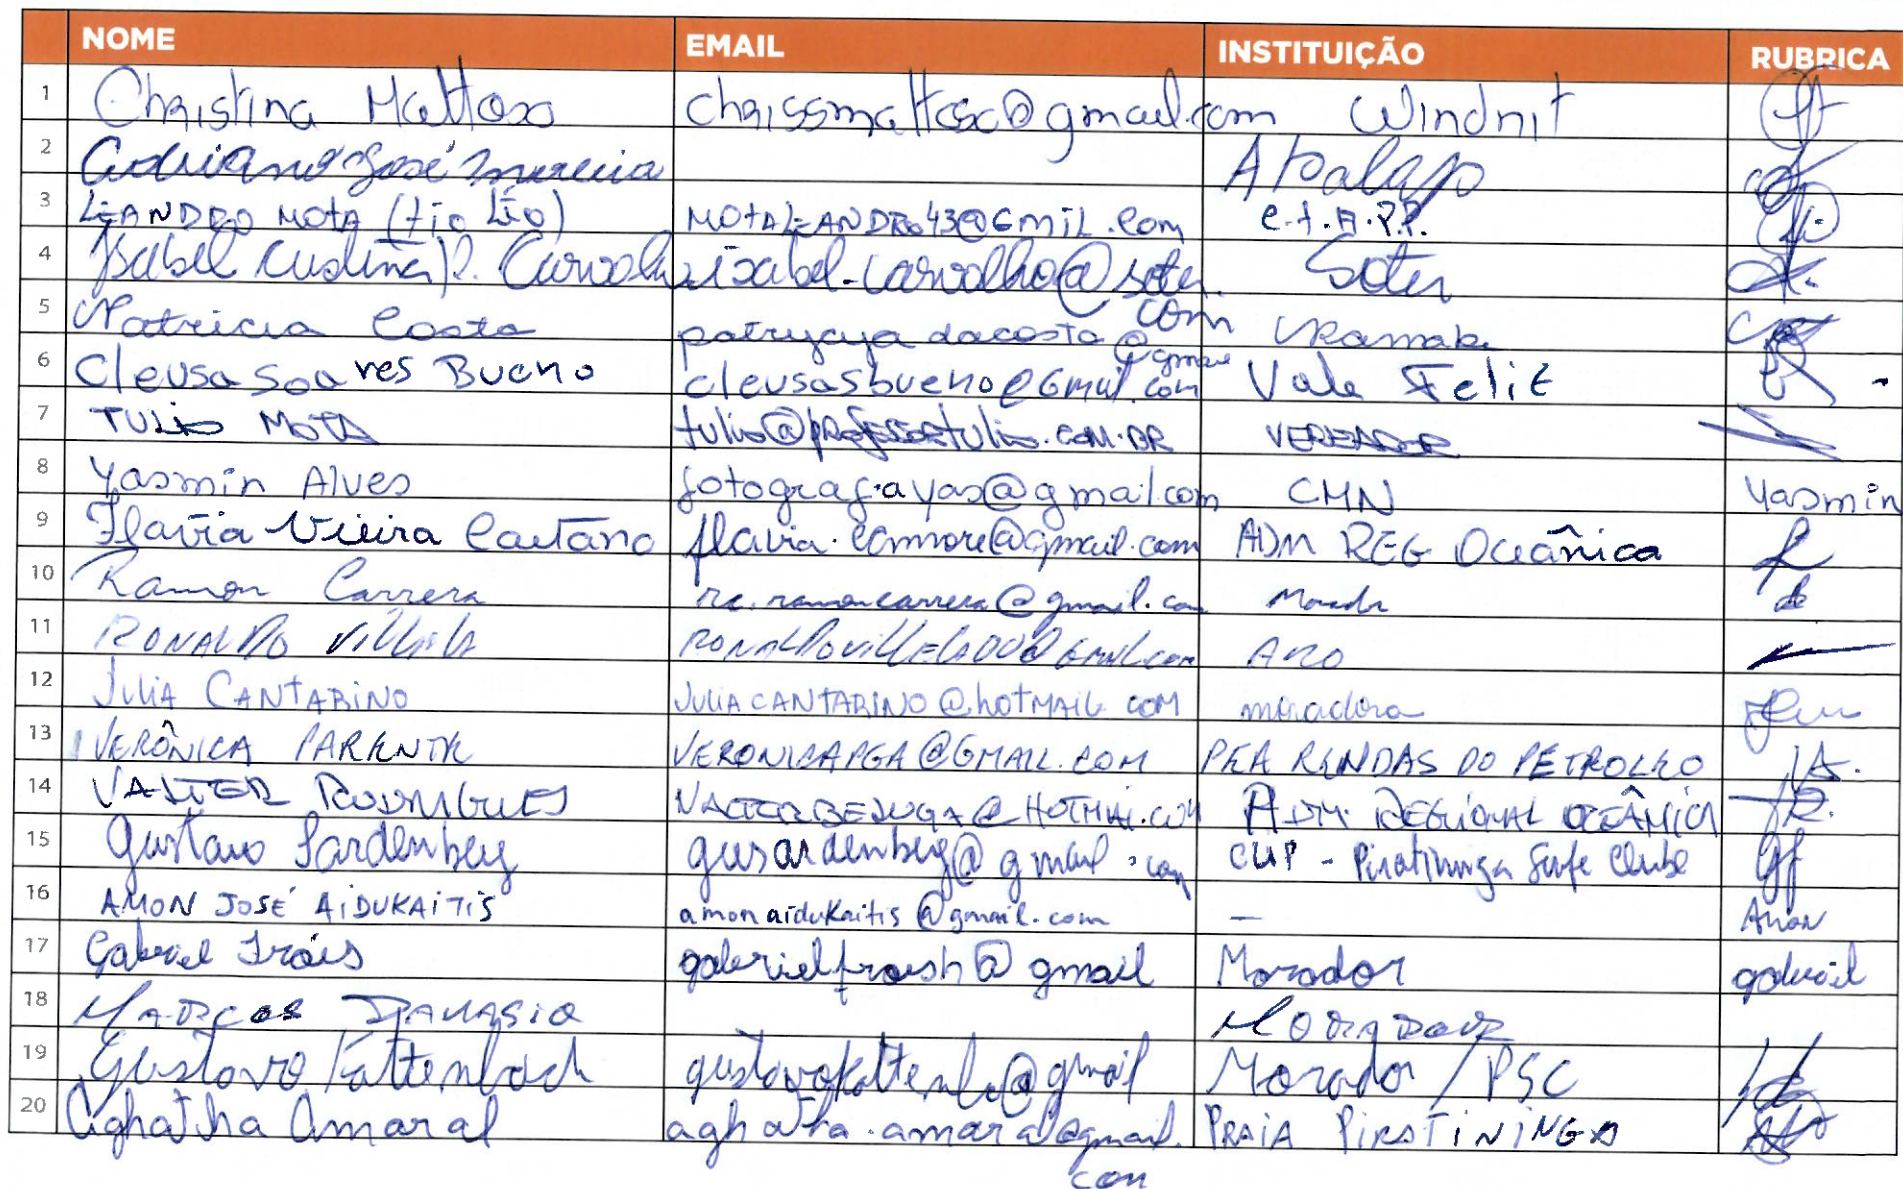 NOME EMAIL INSTITUIÇÃO RUBRICA
1 Christina Mattoso chrissmattoso@gmail.com Windnit
2 Adriano José
3 LEANDRO MOTA (tio Léo) MOTALEANDRO43@GMIL.com
4 Isabel Cristina P. Carvalho isabel.carvalho@soter.com Soter
5 Patricia Costa patrycya dacosta@gmail
6 Cleusa Soares Bueno cleusasbueno@Gmail.com Vale Feliz
7 TULIO MOTA tulio@professortulio.com.BR VEREADOR
8 Yasmin Alves fotografiayas@gmail.com CMN Yasmin
9 Flavia Vieira Caetano ADM REG Oceânica
10 Ramon Carrera rc.ramoncarrera@gmail.com Morador
11 RONALDO Villela
12 JULIA CANTARINO JULIACANTARINO@hotMAIL.COM moradora
13 VERÔNICA PARENTE VERONICAPGA@GMAIL.COM PEA RENDAS DO PETROLEO
14 VALTER RODRIGUES ADM. REGIONAL OCEÂNICA
15 Gustavo Sardenberg gusardenberg@gmail.com - Piratininga Surfe Clube
16 AMON JOSÉ AIDUKAITIS amonaidukaitis@gmail.com — Amon
17 Gabriel Fróis gabrielfroesh@gmail Morador gabriel
18 MARCOS DAMASIO MORADOR
19 Gustavo Kattenbach gustavokattenb@gmail Morador / PSC
20 Aghatha Amaral aghatha.amaral@gmail. PRAIA PIRATININGA
com